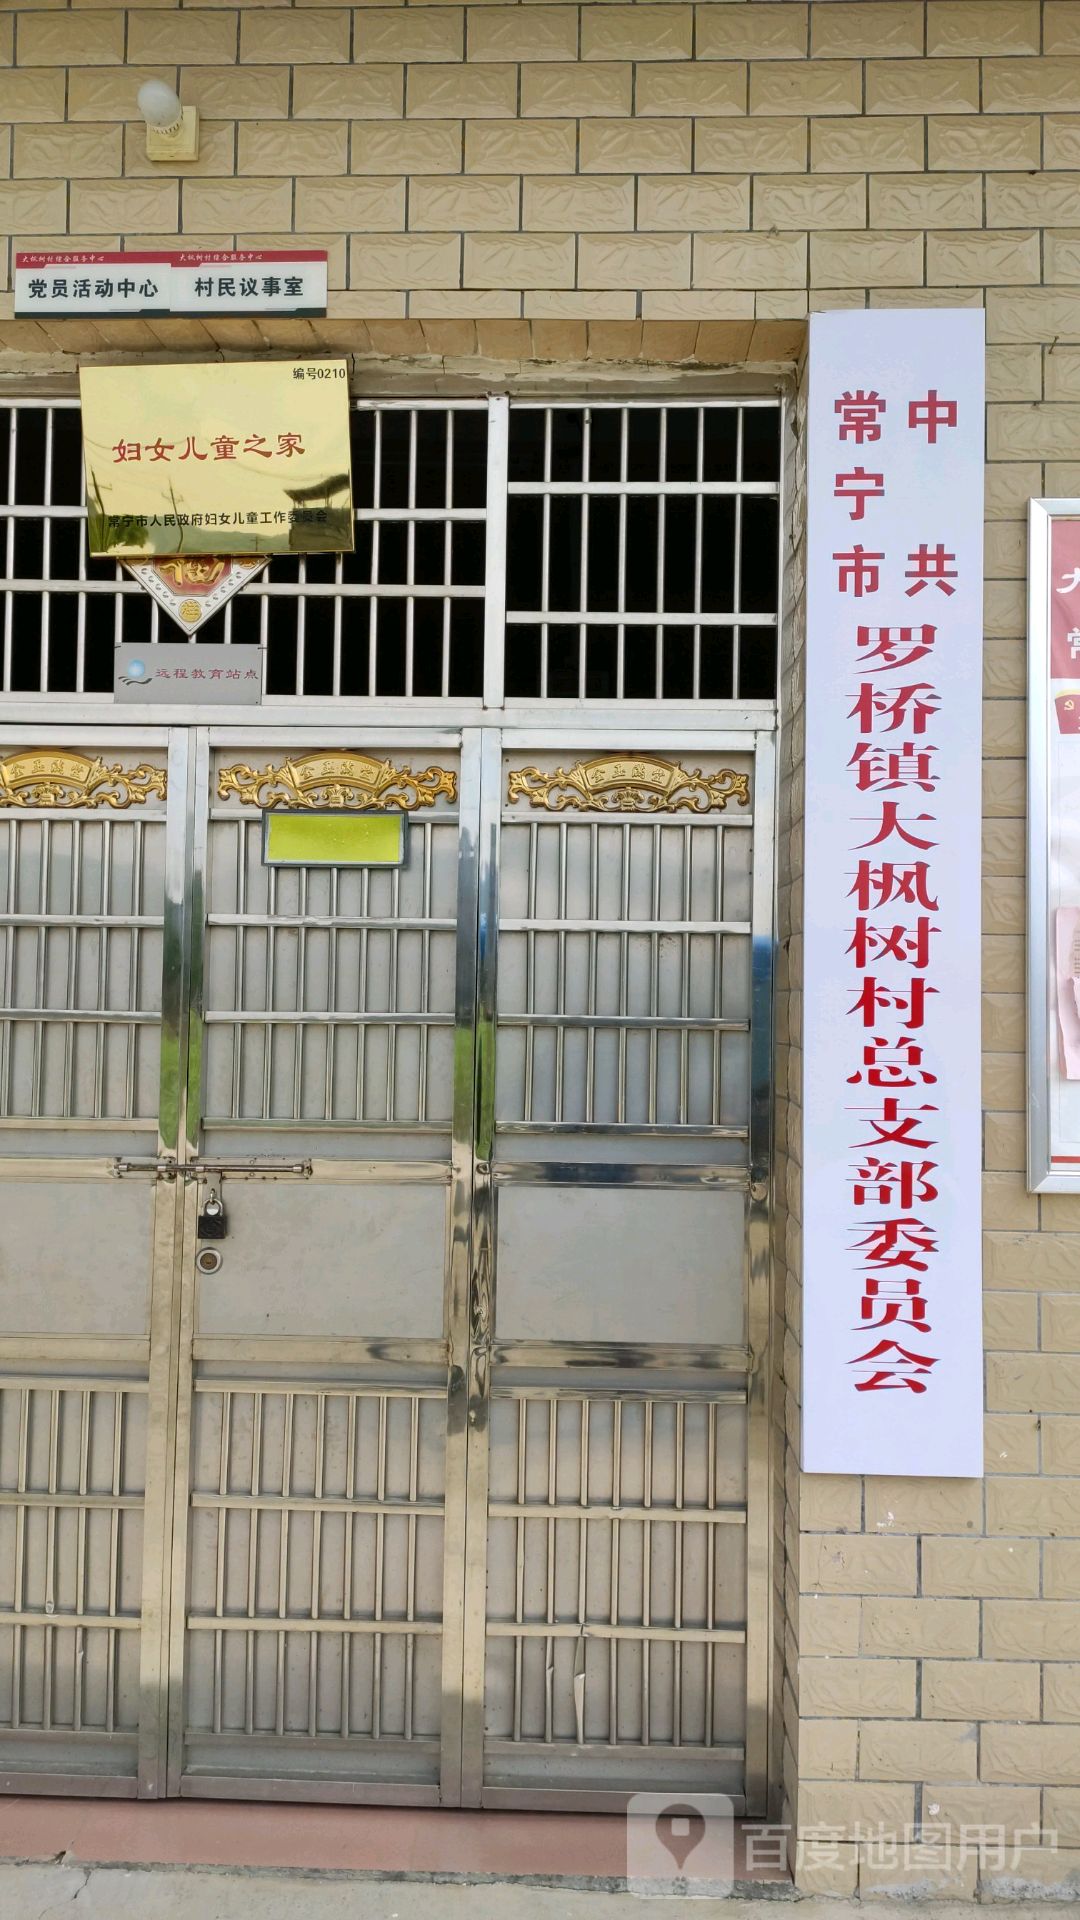 大枫树村综合服务中心
党员活动中心
大枫树村综合服务中心
村民议事室
编号0210
妇女儿童之家
常宁市人民政府妇女儿童工作委员会
远程教育站点
金玉满堂
金玉满堂
金玉满堂
中共
常宁市
罗桥镇大枫树村总支部委员会
百度地图用户